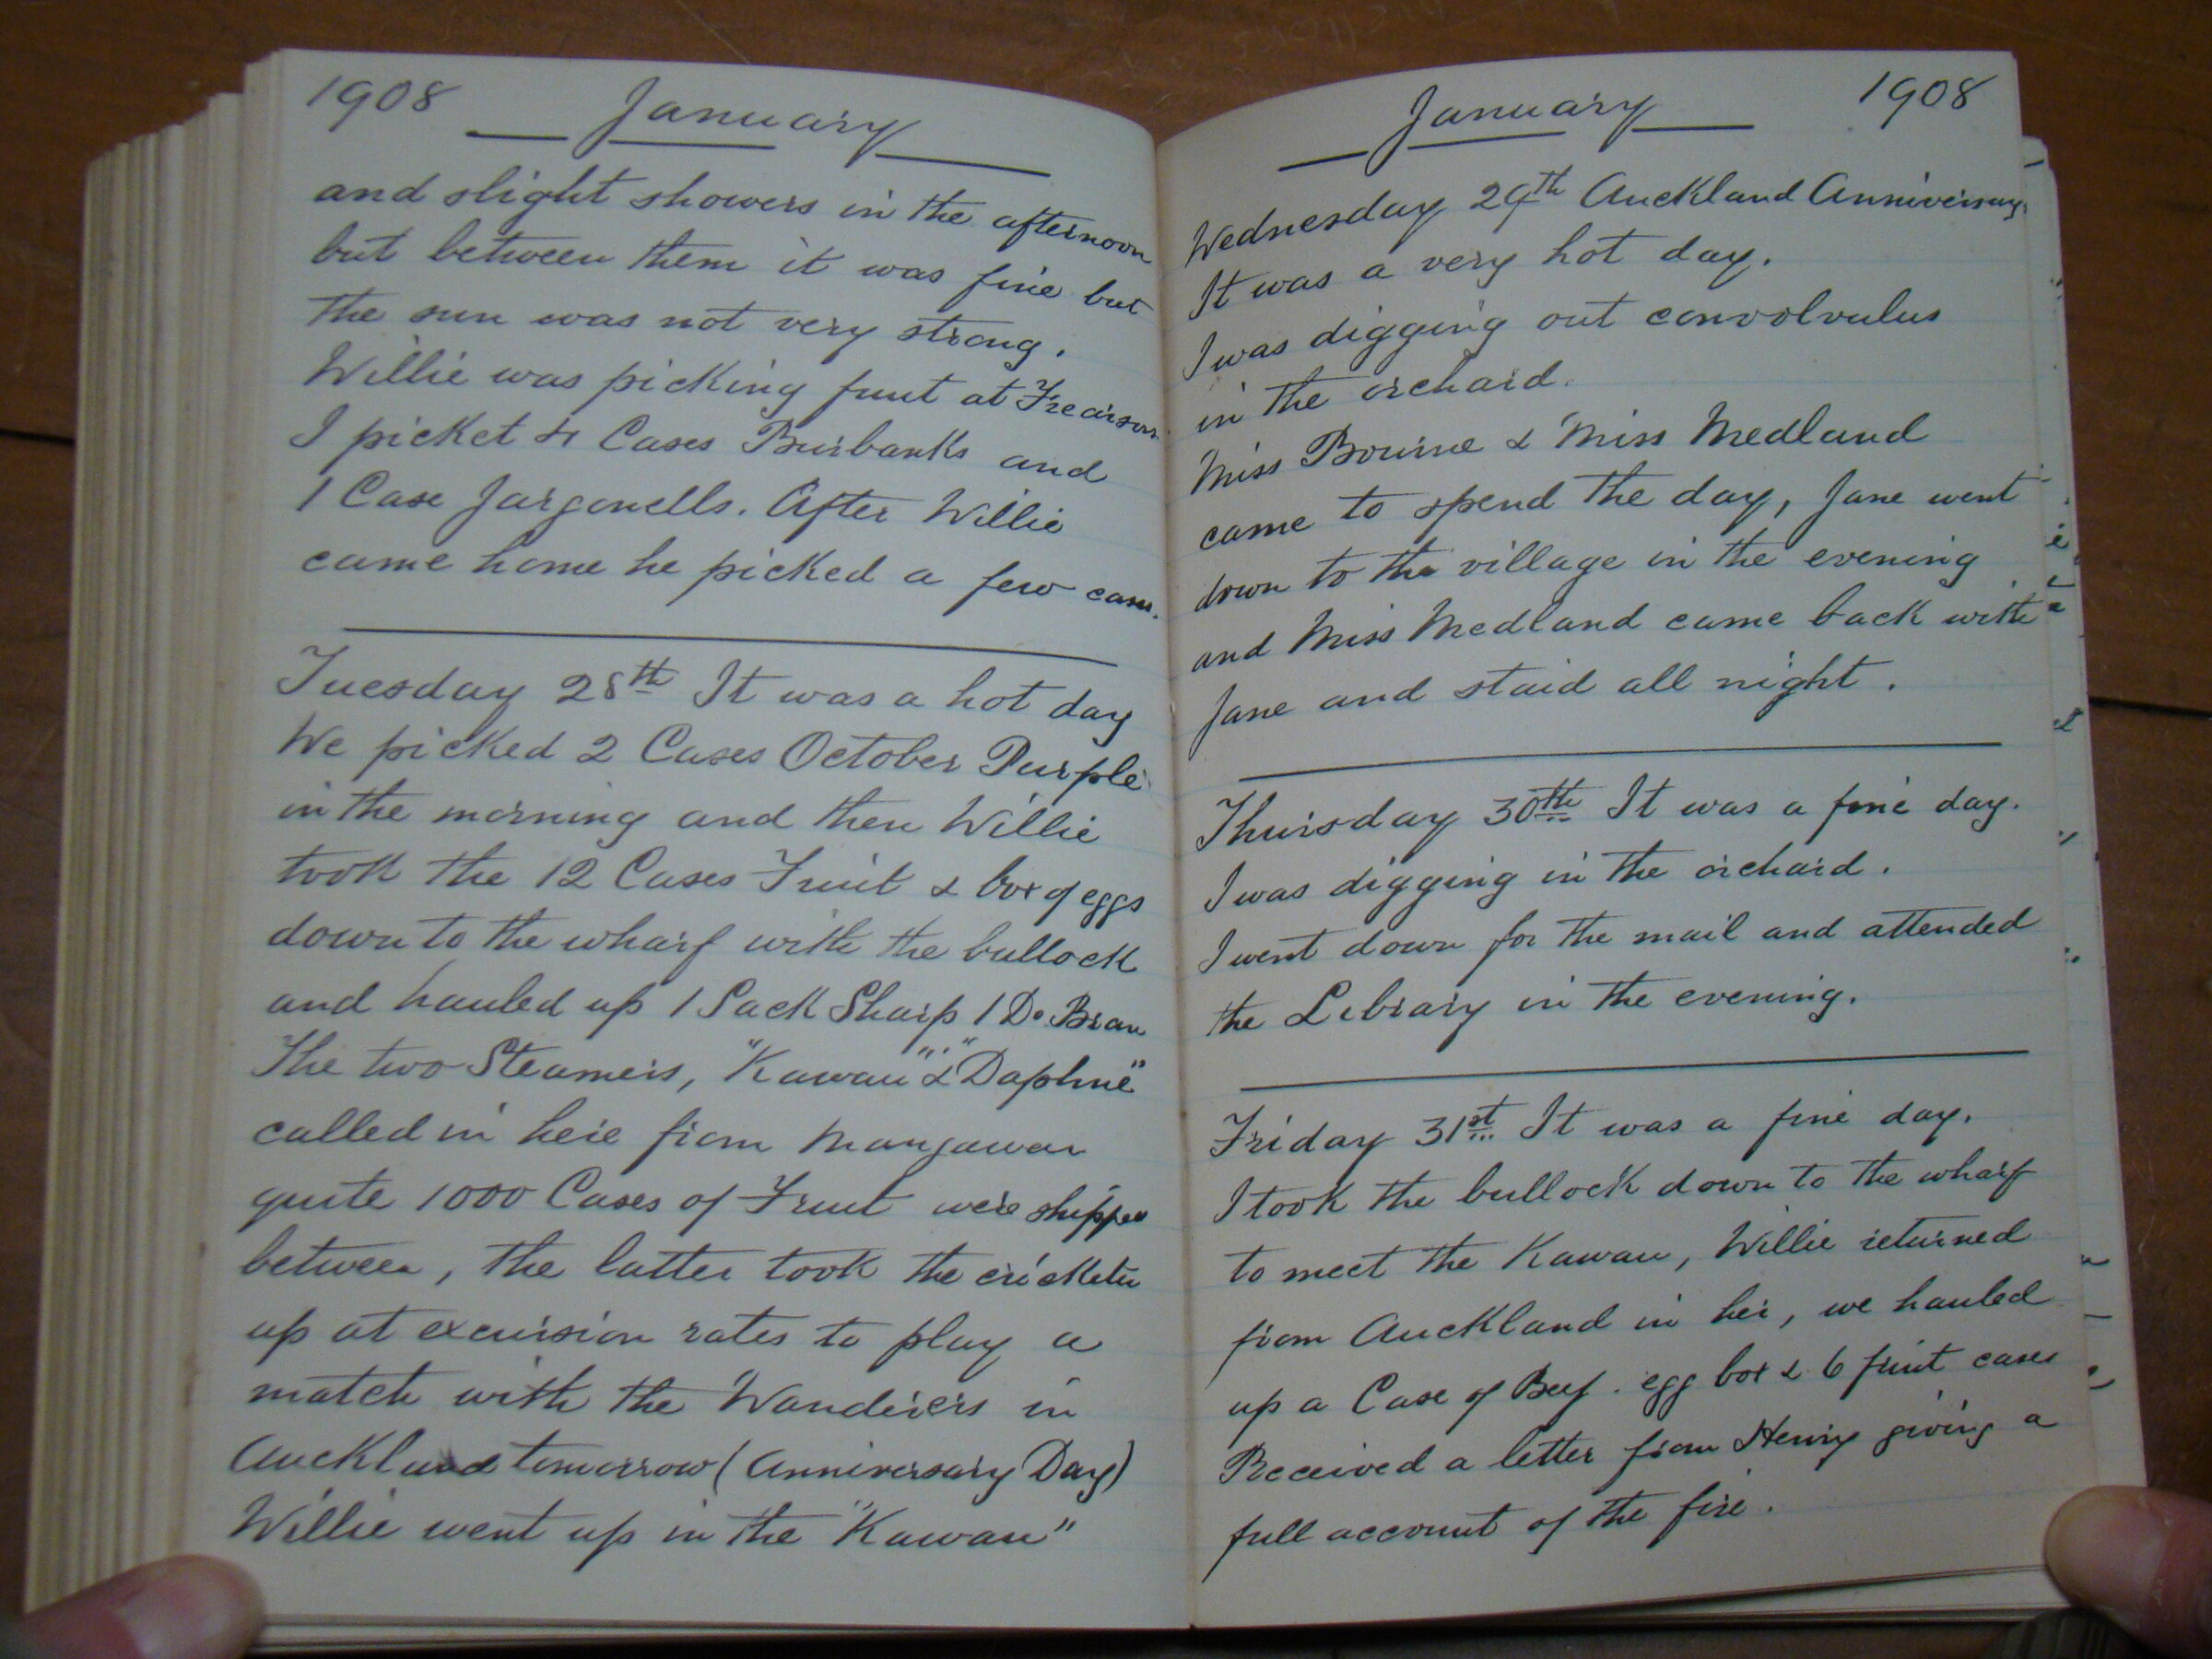 1908 January
and slight showers in the afternoon
but between them it was fine but
the sun was not very strong.
Willie was picking fruit at Frearsons
I picket 4 Cases Burbanks and
1 Case Jargonells. After Willie
came home he picked a few cases.
Tuesday 28th It was a hot day
We picked 2 Cases October Purple
in the morning and then Willie
took the 12 Cases Fruit & box of eggs
down to the wharf with the bullock
and hauled up 1 Sack Sharp 1 Do Bran
The two Steamers, "Kawau" & "Daphne"
called in here from Mangawai
quite 1000 Cases of Fruit were shipped
between, the latter took the cricketers
up at excursion rates to play a
match with the Wanderers in
Auckland tomorrow (Anniversary Day)
Willie went up in the "Kawau"
January 1908
Wednesday 29th Auckland Anniversary.
It was a very hot day.
I was digging out convolvulus
in the orchard.
Miss Bourne & Miss Medland
came to spend the day, Jane went
down to the village in the evening
and Miss Medland came back with
Jane and staid all night.
Thursday 30th It was a fine day.
I was digging in the orchard.
I went down for the mail and attended
the Library in the evening.
Friday 31st It was a fine day.
I took the bullock down to the wharf
to meet the Kawau, Willie returned
from Auckland in her, we hauled
up a Case of Beef. egg box & 6 fruit cases
Received a letter from Henry giving a
full account of the fire.